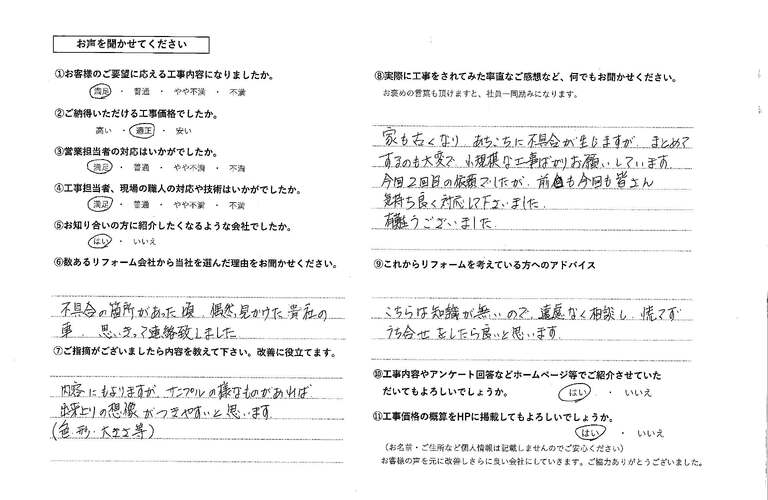 お声を聞かせてください
①お客様のご要望に応える工事内容になりましたか。
満足 ・ 普通 ・ やや不満 ・ 不満
②ご納得いただける工事価格でしたか。
高い ・ 適正 ・ 安い
③営業担当者の対応はいかがでしたか。
満足 ・ 普通 ・ やや不満 ・ 不満
④工事担当者、現場の職人の対応や技術はいかがでしたか。
満足 ・ 普通 ・ やや不満 ・ 不満
⑤お知り合いの方に紹介したくなるような会社でしたか。
はい ・ いいえ
⑥数あるリフォーム会社から当社を選んだ理由をお聞かせください。
不具合の箇所があった頃、偶然見かけた貴社の
車、思いきって連絡致しました
⑦ご指摘がございましたら内容を教えて下さい。改善に役立てます。
内容にもよりますが、サンプルの様なものがあれば
出来上りの想像がつきやすいと思います
(色・形・大きさ等)
⑧実際に工事をされてみた率直なご感想など、何でもお聞かせください。
お褒めの言葉も頂けますと、社員一同励みになります。
家も古くなり、あちこちに不具合が生じますが、まとめて
するのも大変で、小規模な工事ばかりお願いしています。
今回2回目の依頼でしたが、前も今回も皆さん
気持ち良く対応して下さいました。
有難うございました
⑨これからリフォームを考えている方へのアドバイス
こちらは知識が無いので、遠慮なく相談し、慌てず
うち合せをしたら良いと思います
⑩工事内容やアンケート回答などホームページ等でご紹介させていた
だいてもよろしいでしょうか。 はい ・ いいえ
⑪工事価格の概算をHPに掲載してもよろしいでしょうか。
はい ・ いいえ
（お名前・ご住所など個人情報は記載しませんのでご安心ください）
お客様の声を元に改善しさらに良い会社にしていきます。ご協力ありがとうございました。